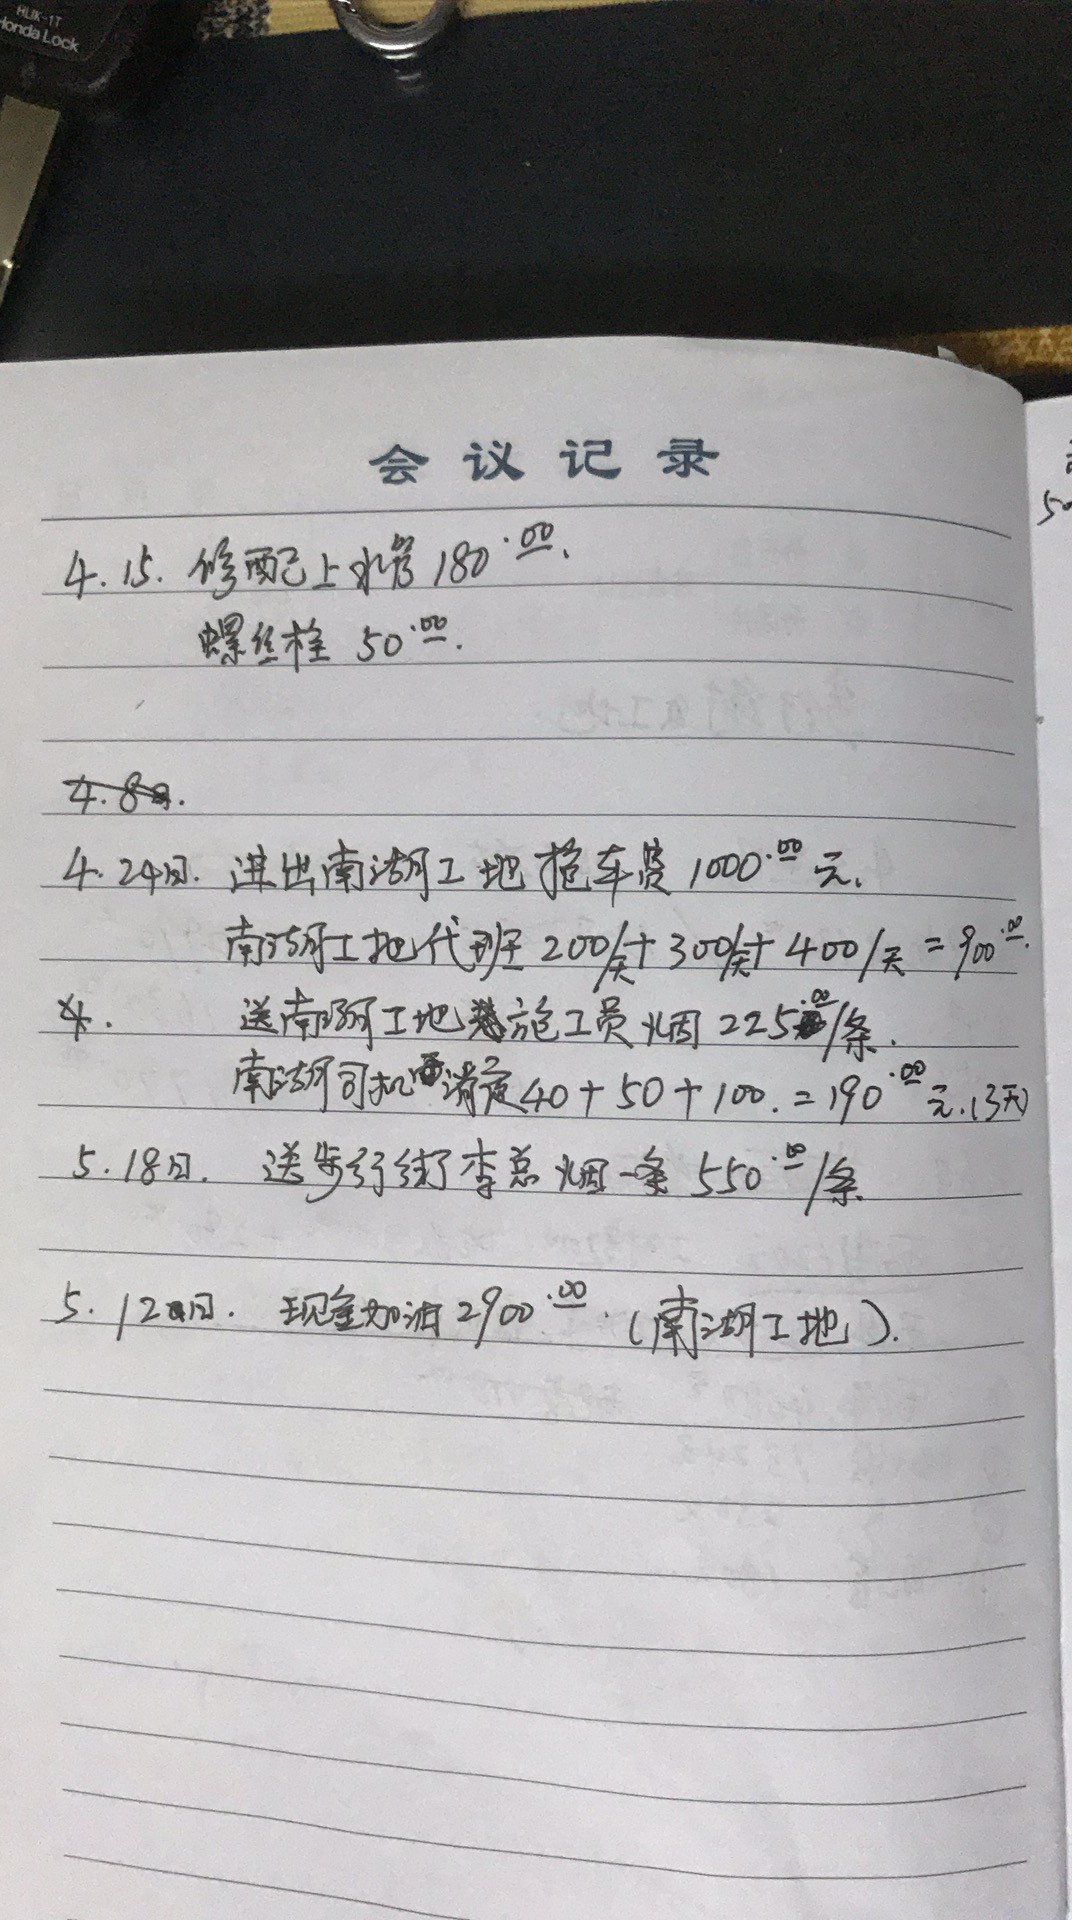 HLIK-1T
Honda Lock
会议记录
4.15. 修配上水管 180.00.
螺丝栓 50.00.
4.8日.
4.24日. 进出南湖工地拖车费 1000.00元.
南湖工地代班 200/天+300/天+400/天=900.00.
4. 送南湖工地施工员烟 225.00/条.
南湖司机消夜 40+50+100.=190.00元.(3天)
5.18日. 送步行街李总烟一条 550.00/条
5.12日. 现金加油 2900.00.(南湖工地).